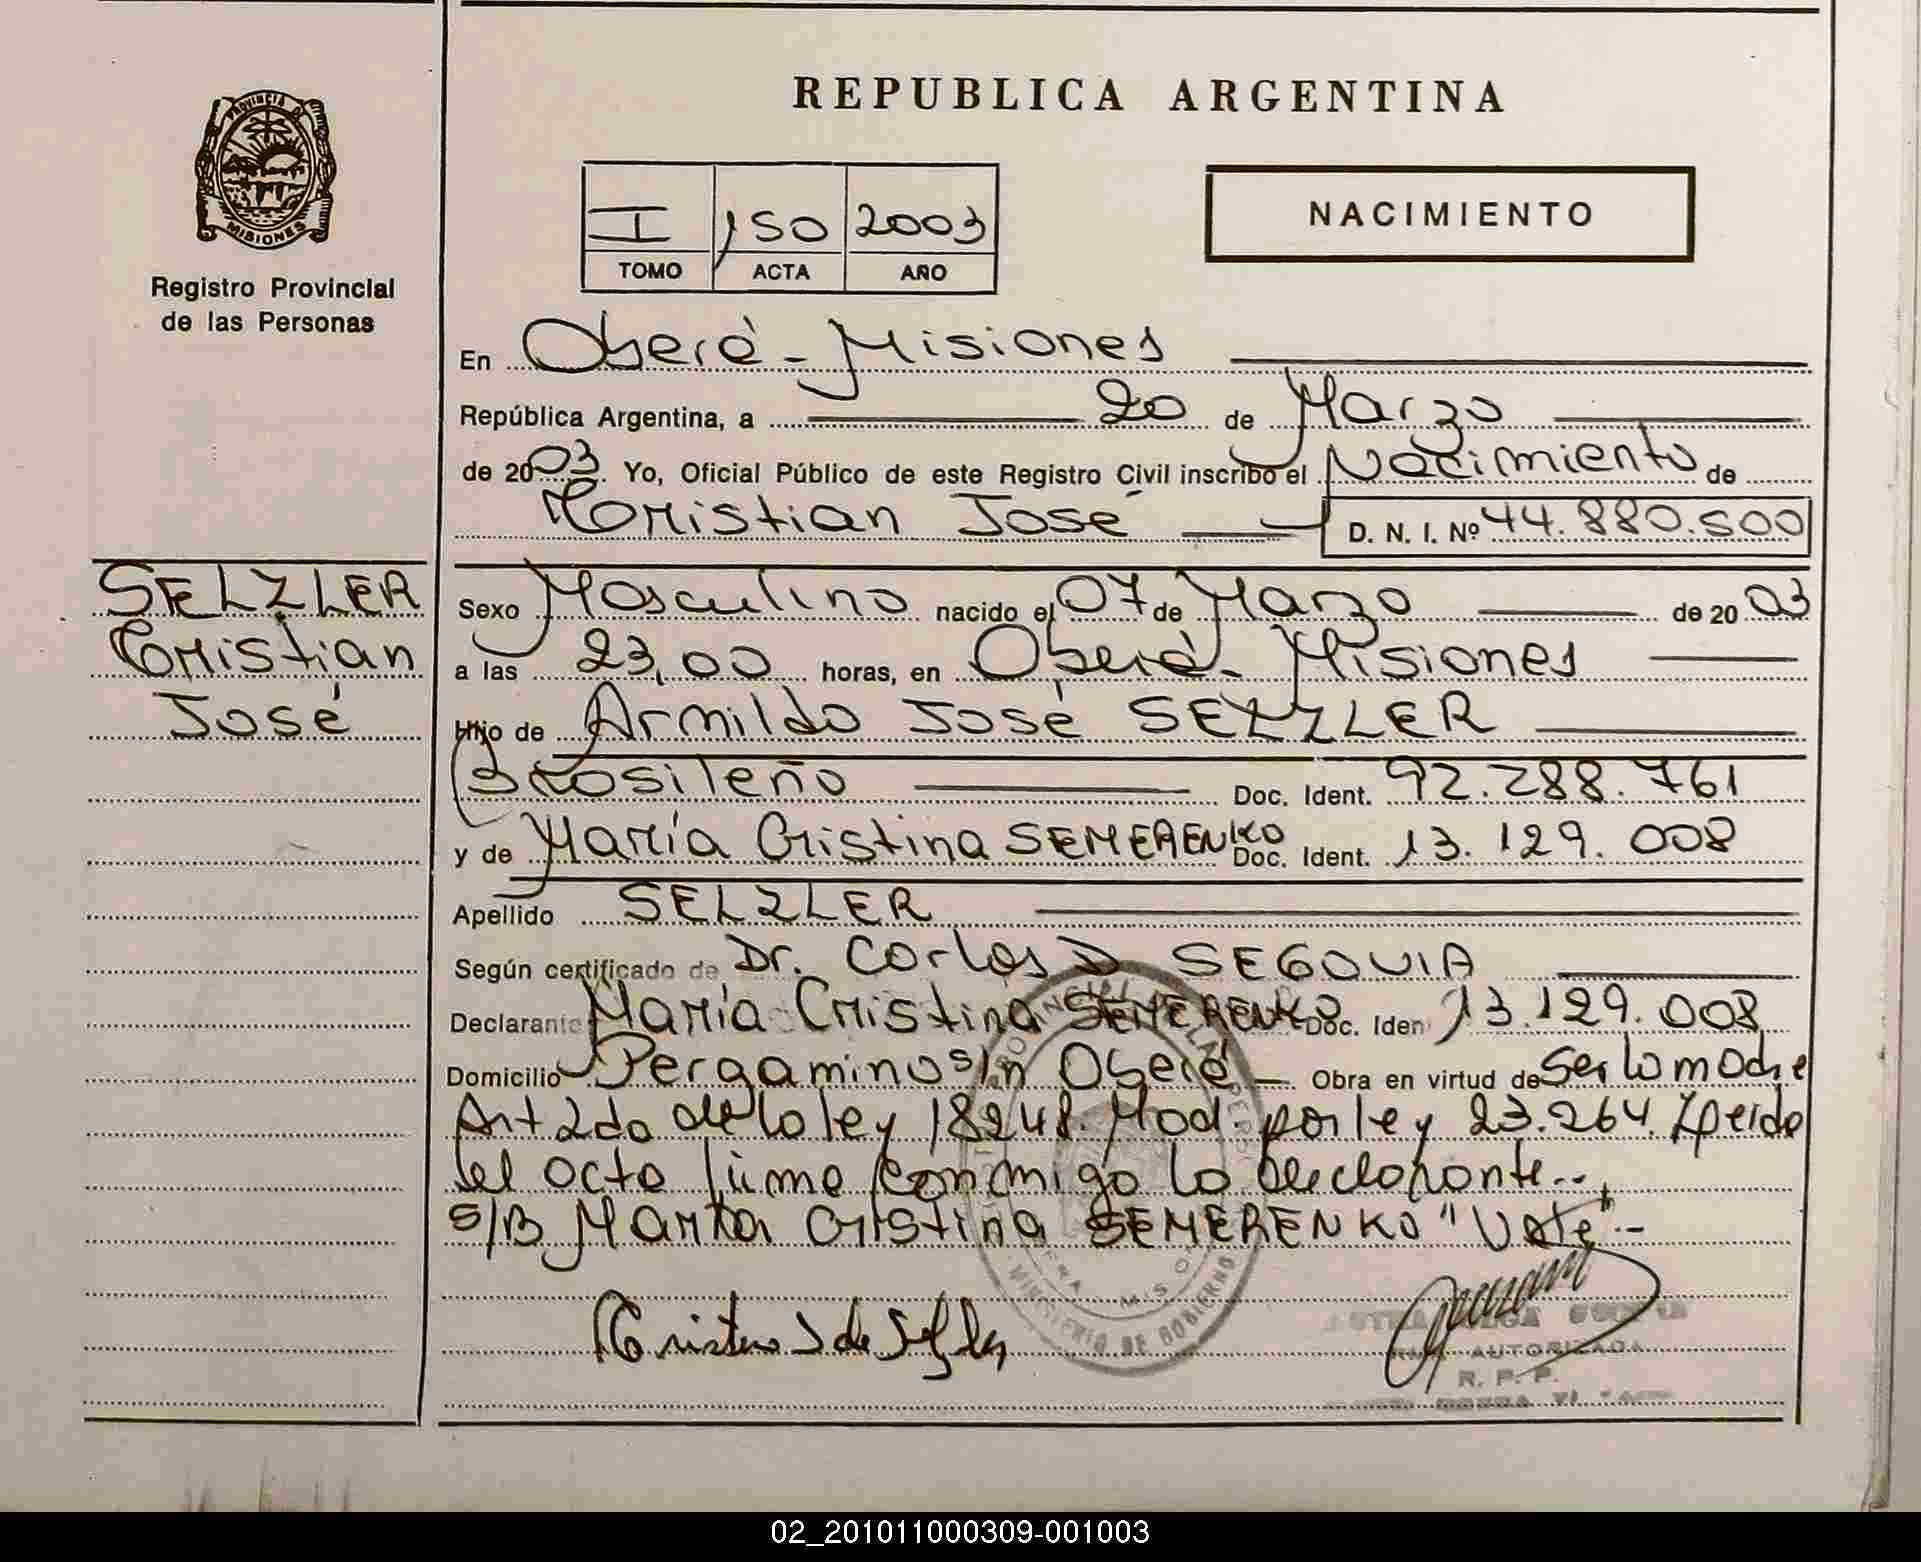 REPUBLICA ARGENTINA
PROVINCIA DE
MISIONES
Registro Provincial
de las Personas
I 150 2003
TOMO ACTA AÑO
NACIMIENTO
En Oberá - Misiones
República Argentina, a 20 de Marzo
de 2003. Yo, Oficial Público de este Registro Civil inscribo el Nacimiento de
Cristian José D. N. I. Nº 44.880.500
SELZLER
Cristian
José
Sexo Masculino nacido el 07 de Marzo de 2003
a las 23,00 horas, en Oberá - Misiones
Hijo de Armildo José SELZLER
Brasileño Doc. Ident. 92.288.761
y de María Cristina SEMERENKO Doc. Ident. 13.129.008
Apellido SELZLER
Según certificado de Dr. Carlos D SEGOVIA
Declarante María Cristina SEMERENKO Doc. Iden 13.129.008
Domicilio Pergamino s/n Oberá - Obra en virtud de Ser la madre
Art 2do de la ley 18248. Mod. por ley 23.264. Leida
el acta firma conmigo la declarante..
S/B María Cristina SEMERENKO "Vale".-
MINISTERIO DE GOBIERNO
AUTORIZADA
R. P. P.
02_201011000309-001003